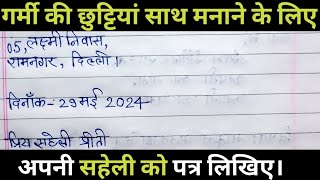 गर्मी की छुट्टियां साथ मनाने के लिए
05, लक्ष्मी निवास,
रामनगर, दिल्ली।
दिनाँक- 29 मई 2024
प्रिय सहेली प्रीती
अपनी सहेली को पत्र लिखिए।